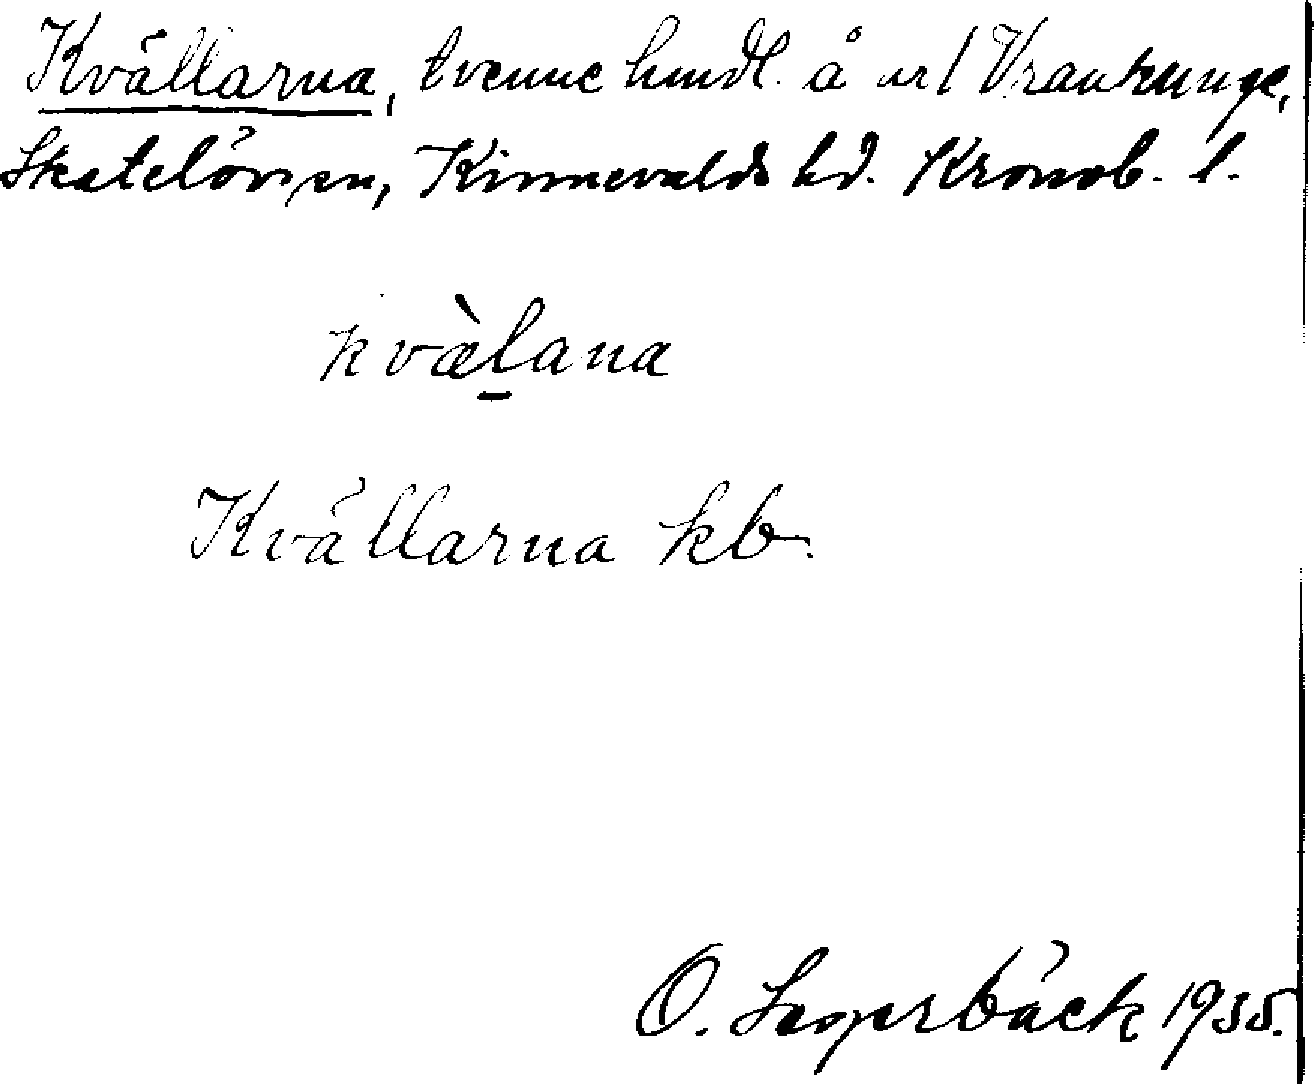 Kvällarna, tvenne hmdl. å nr 1 Vrankunge,
Skatelövs sn, Kinnevalds hd. Kronob. l.
kvæ̀lana
Kvällarna kb.
O. Lagerbäck 1935.